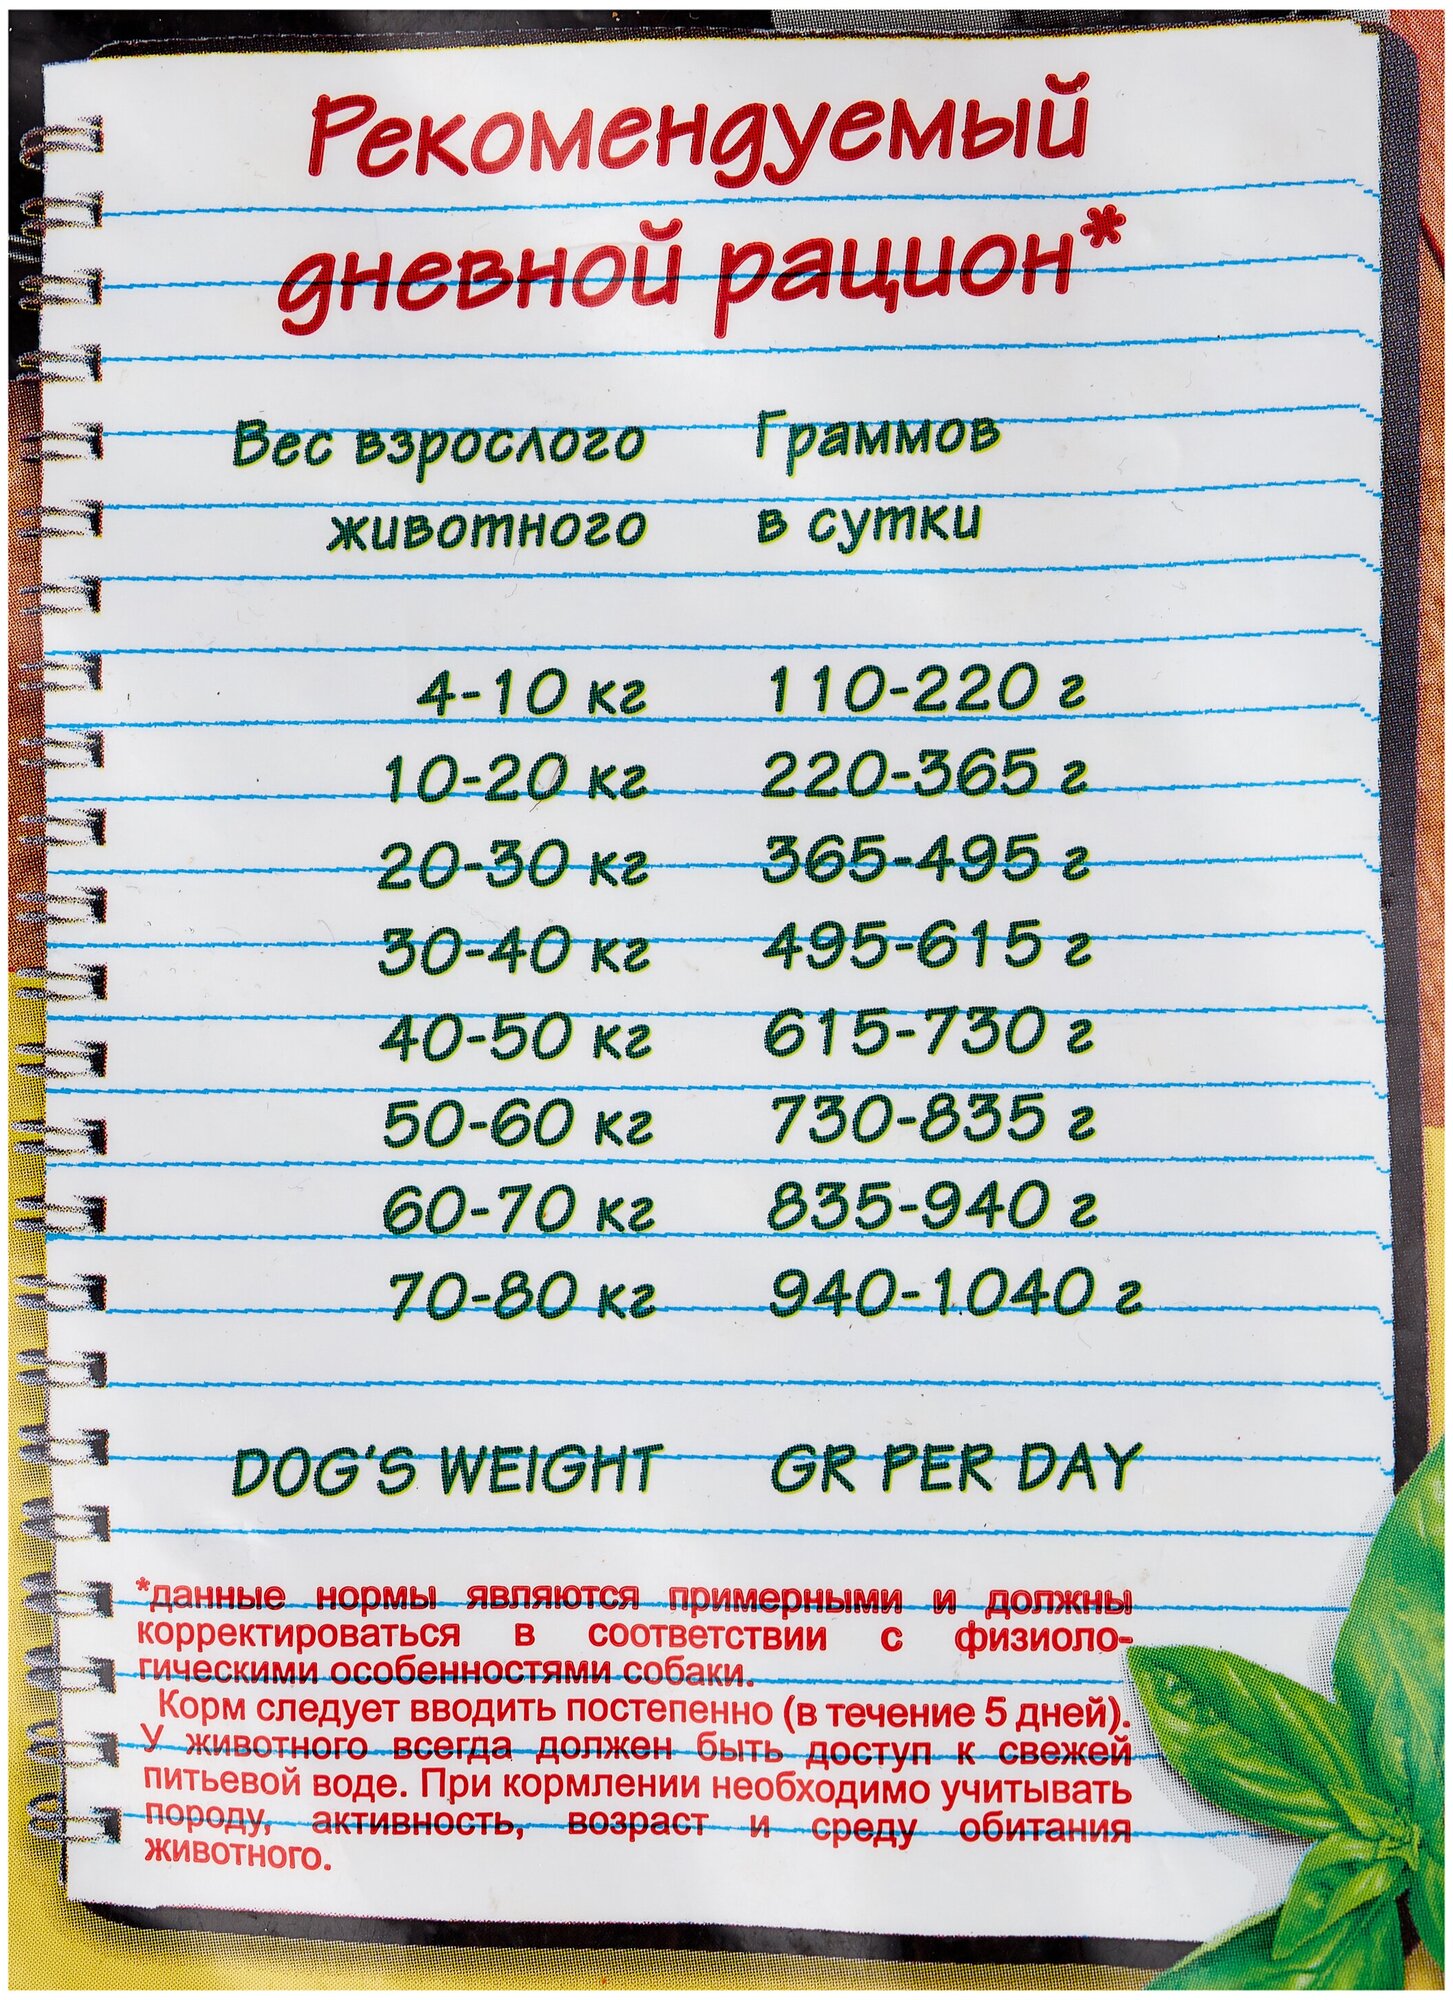 Рекомендуемый
дневной рацион*
Вес взрослого Граммов
животного в сутки
4-10 кг 110-220 г
10-20 кг 220-365 г
20-30 кг 365-495 г
30-40 кг 495-615 г
40-50 кг 615-730 г
50-60 кг 730-835 г
60-70 кг 835-940 г
70-80 кг 940-1040 г
DOG'S WEIGHT GR PER DAY
*данные нормы являются примерными и должны
корректироваться в соответствии с физиоло-
гическими особенностями собаки.
Корм следует вводить постепенно (в течение 5 дней).
У животного всегда должен быть доступ к свежей
питьевой воде. При кормлении необходимо учитывать
породу, активность, возраст и среду обитания
животного.